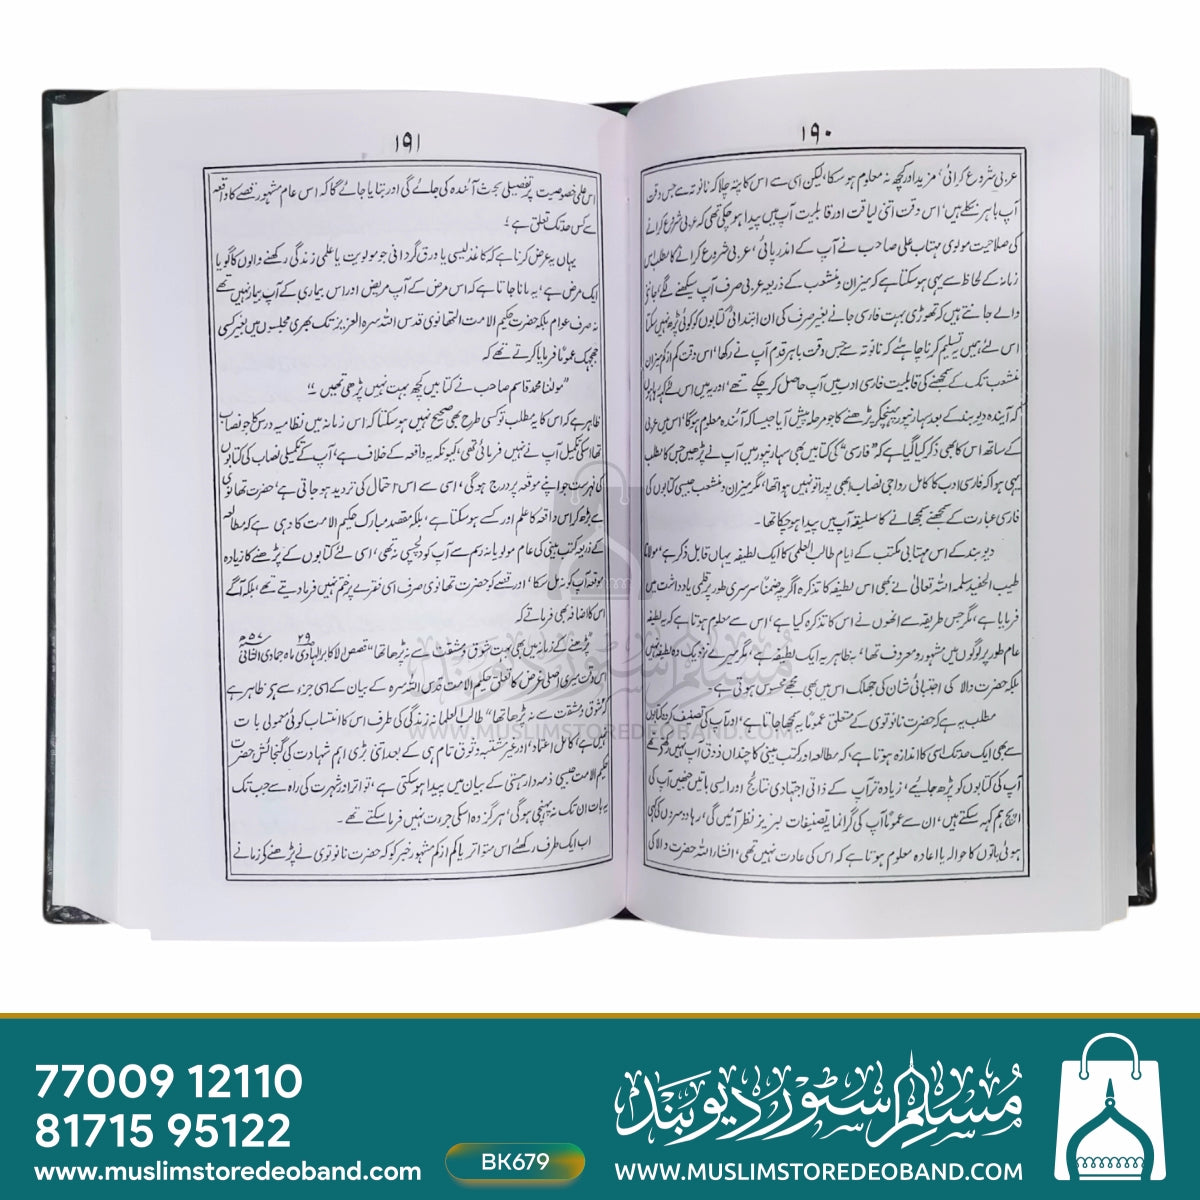 ۱۹۰
عربی شروع کرائی، مزید اور کچھ نہ معلوم ہو سکا، لیکن اسی سے اس کا پتہ چلا کہ نانوتہ سے جس وقت
آپ باہر نکلے ہیں، اس وقت اتنی لیاقت اور قابلیت آپ میں پیدا ہو چکی تھی کہ عربی شروع کرانے
کی صلاحیت مولوی مہتاب علی صاحب نے آپ کے اندر پائی، عربی شروع کرانے کا مطلب اس
زمانہ کے لحاظ سے یہی ہو سکتا ہے کہ میزان و منشعب کے ذریعہ عربی صرف آپ سیکھنے لگے، جاننے
والے جانتے ہیں کہ تھوڑی بہت فارسی جانے بغیر صرف کی ان ابتدائی کتابوں کو کوئی پڑھ نہیں سکتا
اس لئے ہمیں تسلیم کرنا چاہئے کہ نانوتہ سے جس وقت باہر قدم آپ نے رکھا، اس وقت کم از کم میزان
منشعب تک کے سمجھنے کی قابلیت فارسی ادب میں آپ حاصل کر چکے تھے، اور یہ میں اس لئے کہہ رہا ہوں
کہ آیندہ دیوبند کے بعد سہارنپور پہنچکر پڑھنے کا جو مرحلہ پیش آیا جیسا کہ آئندہ معلوم ہوگا، اس میں عربی
کے ساتھ اس کا بھی ذکر کیا گیا ہے کہ "فارسی" کی کتابیں بھی سہارنپور میں آپ نے پڑھیں جس کا مطلب
یہی ہوا کہ فارسی ادب کا کامل رواجی نصاب ابھی پورا تو نہیں ہوا تھا، مگر میزان و منشعب جیسی کتابوں کی
فارسی عبارت کے سمجھنے سمجھانے کا سلیقہ آپ میں پیدا ہو چکا تھا۔
دیوبند کے اس مہتابی مکتب کے ایام طالب العلمی کا ایک لطیفہ یہاں قابل ذکر ہے، مولانا
طیب الحفید سلمہ اللہ تعالیٰ نے بھی اس لطیفہ کا تذکرہ اگرچہ ضمناً سرسری طور پر قلمی یادداشت میں
فرمایا ہے، مگر جس طریقہ سے انھوں نے اس کا تذکرہ کیا ہے، اس سے معلوم ہوتا ہے کہ یہ لطیفہ
عام طور پر لوگوں میں مشہور و معروف تھا، بظاہر یہ ایک لطیفہ ہے، مگر میرے نزدیک وہ لطیفہ نہیں
بلکہ حضرت والا کی اجتبائی شان کی جھلک اس میں بھی مجھے محسوس ہوتی ہے۔
مطلب یہ ہے کہ حضرت نانوتوی کے متعلق عموماً یہ سمجھا جاتا ہے، اور آپ کی تصنیف کردہ کتابوں
سے بھی ایک حد تک اسی کا اندازہ ہوتا ہے، کہ مطالعہ اور کتب بینی کا چنداں ذوق آپ نہیں رکھتے تھے
آپ کی کتابوں کو پڑھ جائیے، زیادہ تر آپ کے ذاتی اجتہادی نتائج اور ایسی باتیں جنھیں آپ کی
اپج ہم کہہ سکتے ہیں، ان سے عموماً آپ کی گرانمایہ تصنیفات لبریز نظر آئیں گی، رہا دوسروں کی کہی
ہوئی باتوں کا حوالہ یا اعادہ معلوم ہوتا ہے کہ اس کی عادت نہیں تھی، انشاء اللہ حضرت والا کی
۱۹۱
اس علمی خصوصیت پر تفصیلی بحث آئندہ کی جائے گی اور بتایا جائے گا کہ اس عام مشہور قصے کا واقعہ
سے کس حد تک تعلق ہے؟
یہاں یہ عرض کرنا ہے کہ کاغذ لیسی یا ورق گردانی جو مولویت یا علمی زندگی رکھنے والوں کا گویا
ایک مرض ہے، یہ مانا جاتا ہے کہ اس مرض کے آپ مریض اور اس بیماری کے آپ بیمار نہیں تھے
نہ صرف عوام بلکہ حضرت حکیم الامت التھانوی قدس اللہ سرہ العزیز تک بھری مجلسوں میں بغیر کسی
جھجک عموماً فرمایا کرتے تھے کہ
"مولنا محمد قاسم صاحب نے کتابیں کچھ بہت نہیں پڑھی تھیں"
ظاہر ہے کہ اس کا یہ مطلب تو کسی طرح بھی صحیح نہیں ہو سکتا کہ اس زمانہ میں نظامیہ درس کا جو نصاب
تھا اسکی تکمیل آپ نے نہیں فرمائی تھی، کیونکہ یہ واقعہ کے خلاف ہے، آپ کے تکمیلی نصاب کی کتابوں
کی فہرست جو اپنے موقعہ پر درج ہوگی، اسی سے اس احتمال کی تردید ہو جاتی ہے، حضرت تھانوی
سے بڑھ کر اس واقعہ کا علم اور کسے ہو سکتا ہے، بلکہ مقصد مبارک حکیم الامت کا وہی ہے کہ مطالعہ
کے ذریعہ کتب بینی کی عام مولویانہ رسم سے آپ کو دلچسپی نہ تھی، اسی لئے کتابوں کے پڑھنے کا زیادہ
موقعہ آپ کو نہ مل سکا، اور قصے کو حضرت تھانوی صرف اسی فقرے پر ختم نہیں فرما دیتے تھے، بلکہ آگے
اس کا اضافہ بھی فرماتے کہ
"پڑھنے کے زمانہ میں بھی بہت شوق و مشقت سے نہ پڑھا تھا" قصص الاکابر الہادی ۲۹ ماہ جمادی الثانی ۵۷ھ
اس وقت میری اصلی غرض کا تعلق حکیم الامت قدس اللہ سرہ کے بیان کے اسی جزء سے ہے، ظاہر ہے
کہ شوق و مشقت سے نہ پڑھا تھا" طالب العلمانہ زندگی کی طرف اس کا انتساب کوئی معمولی بات
نہیں ہے، کامل اعتماد، اور غیر مشتبہ وثوق تام ہی کے بعد اتنی بڑی اہم شہادت کی گنجائش حضرت
حکیم الامت جیسی ذمہ دار ہستی کے بیان میں پیدا ہو سکتی ہے، تواتر اور شہرت کی راہ سے جب تک
یہ بات ان تک نہ پہنچی ہوگی، ہرگز وہ اسکی جرءت نہیں فرما سکتے تھے۔
اب ایک طرف رکھئے اس متواتر یا کم از کم مشہور خبر کو کہ حضرت نانوتوی نے پڑھنے کی زمانے
مسلم سٹور دیوبند
WWW.MUSLIMSTOREDEOBAND.COM
77009 12110
81715 95122
www.muslimstoredeoband.com
BK679
مسلم سٹور دیوبند
WWW.MUSLIMSTOREDEOBAND.COM